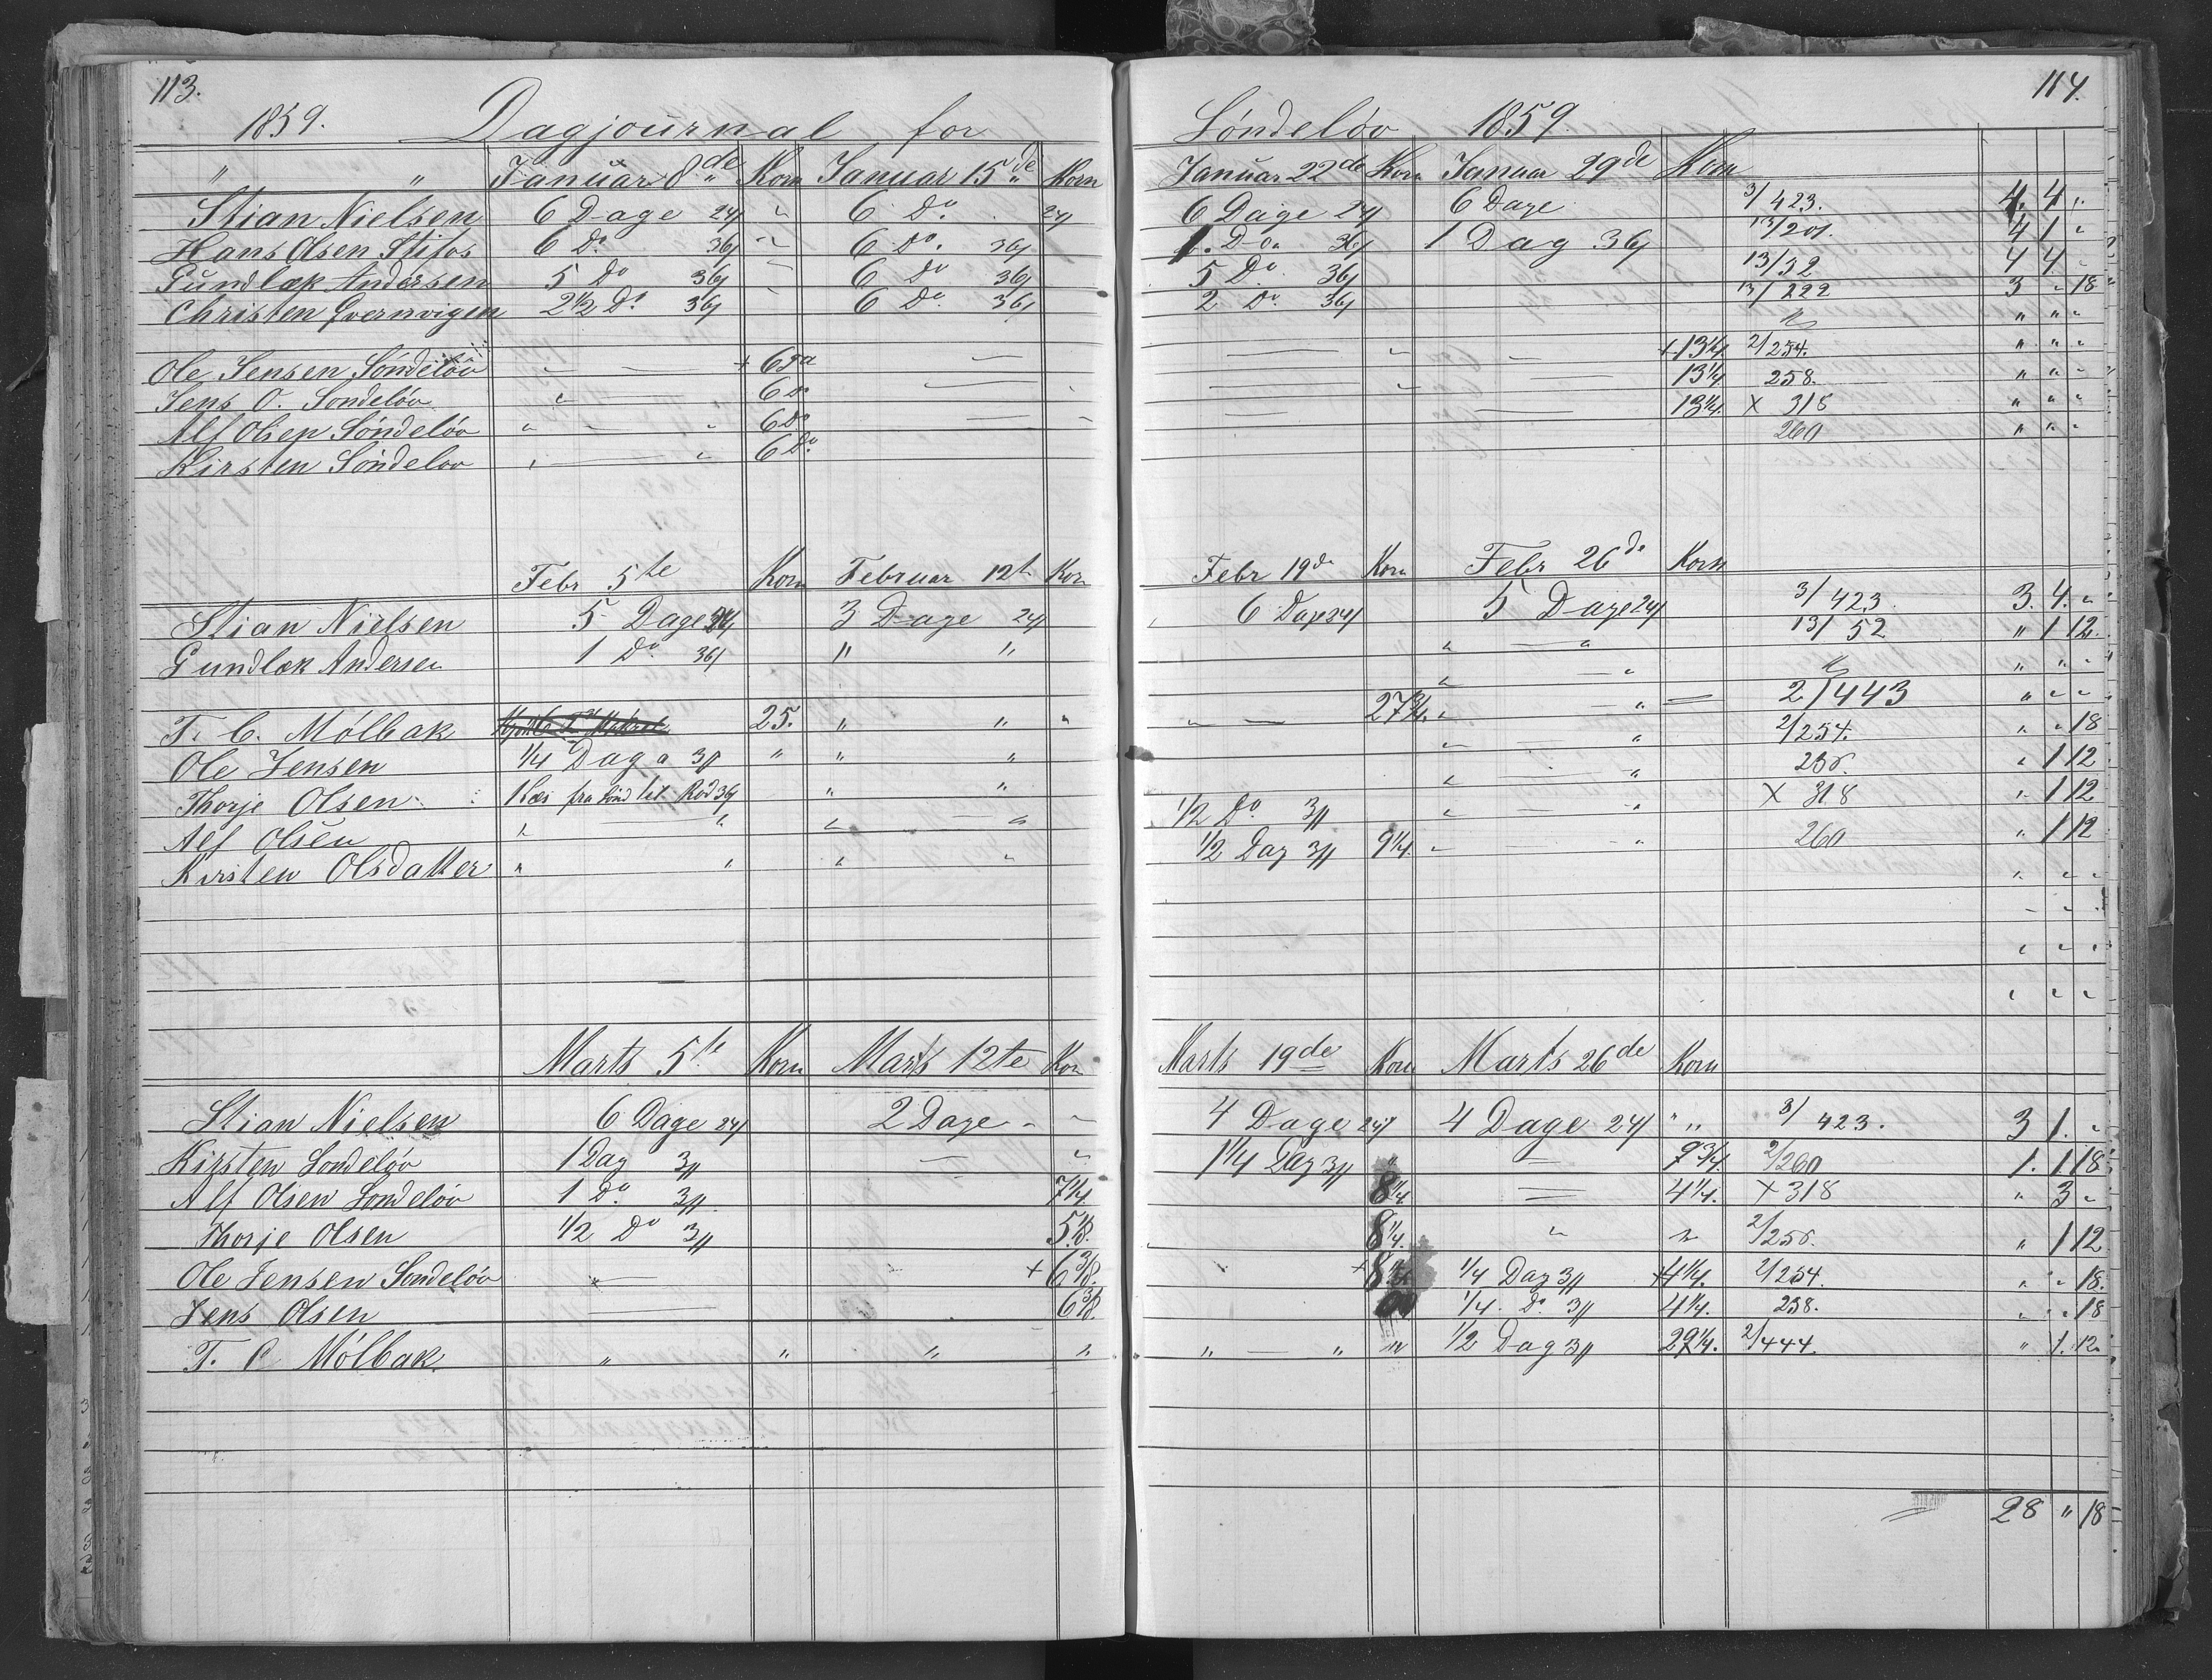 113.
1859. Dagjournal for
" " Januar 8de Korn Januar 15de Korn
Stian Nielsen 6 Dage 24 " 6 Do. 24
Hans Olsen Stifos 6 Do 36 " 6 Do. 36
Gundlæk Andersen 5 Do 36 " 6 Do 36
Christen Qvernvigen 2½ Do 36 " 6 Do 36
Ole Jensen Söndelöv " — + 6
Jens O. Sondelöv " — 6 Do
Alf Olsen Söndelöv " — " 6 Do
Kirsten Söndelov " — " 6 Do.
Febr 5te Korn Februar 12t Kor
Stian Nielsen 5 Dage 24 3 Dage 24
Gundlæk Andersen 1 Do. 36 " "
T. C. Mölbak 25. " " "
Ole Jensen ¼ Dag a 3 " " "
Thorje Olsen 1 Læs fra Sönd til Rod 36 " "
Alf Olsen " — " " — "
Kirsten Olsdatter " " " "
Marts 5te Korn Marts 12te Kor
Stian Nielsen 6 Dage 24 2 Dage - "
Kirsten Sondelöv 1 Dag 3 — "
Alf Olsen Sondelöv 1 Do. 3 7¼.
Thorje Olsen ½ Do 3 5⅛.
Ole Jensen Sondelöv " — + 6⅜.
Jens Olsen — 6⅜.
T. C Mölbak " " " "
114.
Söndelöv 1859.
Januar 22de Korn Januar 29de Korn
6 Dage 24 6 Dage 3/423. 4. 4 "
1. Do. 36 1 Dag 36 13/201. 4 1 "
5 Do. 36 13/52 4 4 -
2 Do. 36 13/222 3 " 18
" " "
— " — + 13¼ 2/254. " " "
— " — 13¼ 258. " " "
— — 13¼. X 318 " " "
260 " " "
Febr 19de Korn Febr 26de Korn
6 Dage 24 5 Dage 24 3/423. 3. 4. "
" — " 13/52 " 1 12.
" — " " " "
" — 27¾. " — " — 2/443 " " "
" — " 2/254. " " 18
" — " 256. " 1 12
½ Do 3 " — " X 318 " 1 12
½ Dag 3 9¼. " - " 260 " 1 12
" " "
- " "
" " "
" " "
Marts 19de Korn Marts 26de Korn
4 Dage 24 4 Dage 24 " " 3/423. 3 1. "
1¼ Dag 3 " — 9¾. 2/260 1. 1 18.
8¼. — 4¼. X 318 " 3 "
8¼. " " 2/256. " 1 12
+ 8 ¼ Dag 3 + 4¼. 2/254. " " 18.
¼. Do. 3 4¼. 258. " " 18
" — " " ½ Dag 3 29¼. 2/444. " 1. 12.
28 " 18